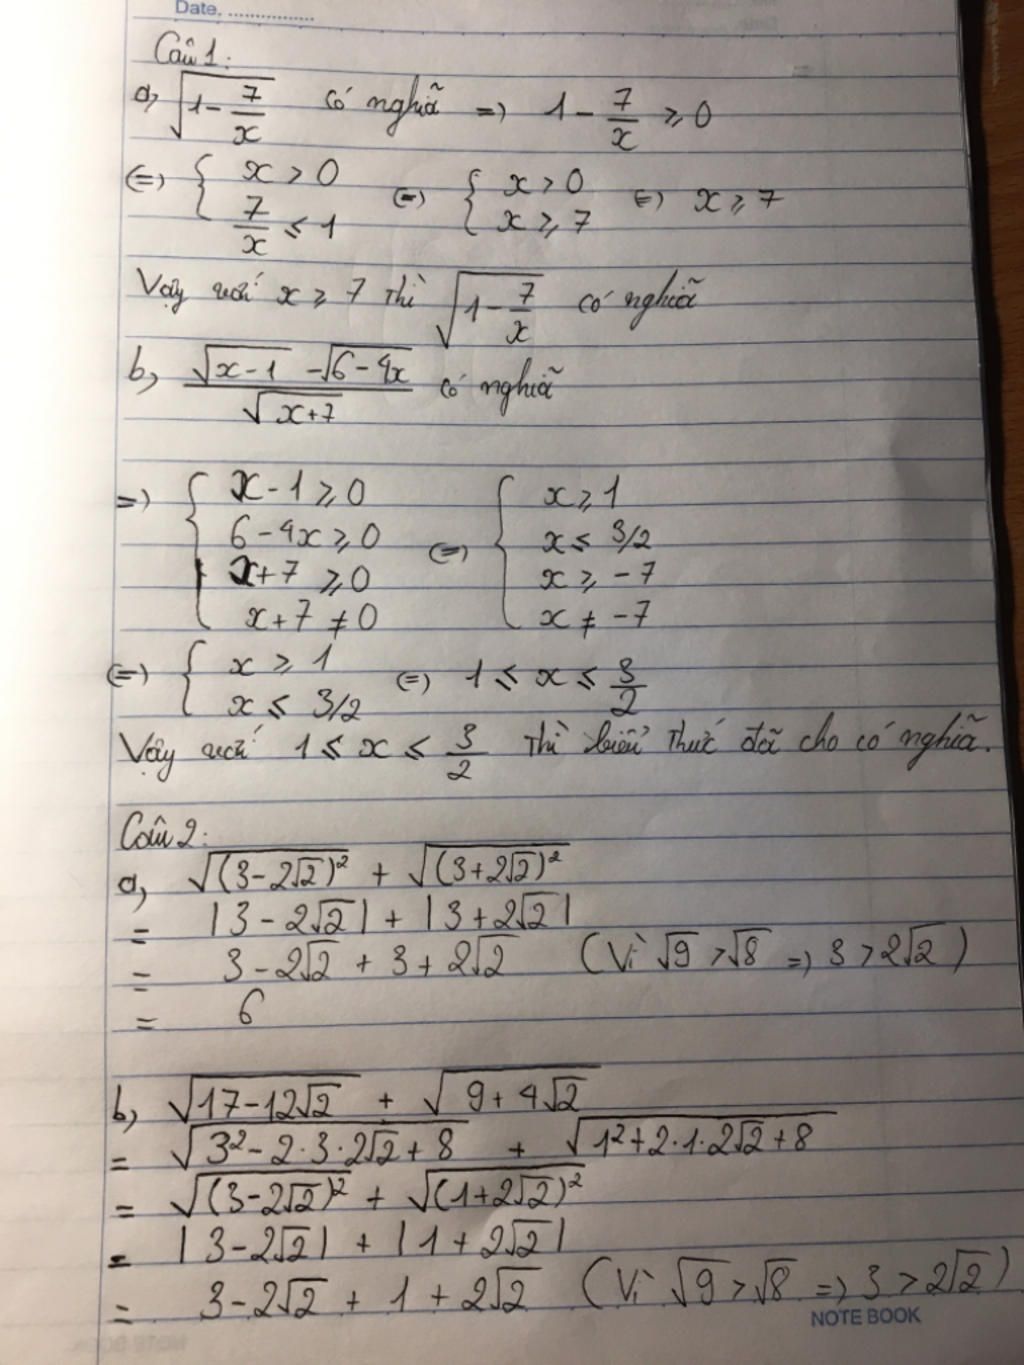 Date, ...............
Câu 1:
a, √(1 - 7/x) có nghĩa => 1 - 7/x ⩾ 0
<=> { x > 0 ; 7/x ⩽ 1 <=> { x > 0 ; x ⩾ 7 <=> x ⩾ 7
Vậy với x ⩾ 7 thì √(1 - 7/x) có nghĩa
b, (√(x-1) - √(6-4x))/√(x+7) có nghĩa
=> { x - 1 ⩾ 0 <=> { x ⩾ 1
6 - 4x ⩾ 0 x ⩽ 3/2
x + 7 ⩾ 0 x ⩾ -7
x + 7 ≠ 0 x ≠ -7
<=> { x ⩾ 1 ; x ⩽ 3/2 <=> 1 ⩽ x ⩽ 3/2
Vậy với 1 ⩽ x ⩽ 3/2 thì biểu thức đã cho có nghĩa.
Câu 2:
a, √((3-2√2)²) + √((3+2√2)²)
= |3 - 2√2| + |3 + 2√2|
= 3 - 2√2 + 3 + 2√2 (Vì √9 > √8 => 3 > 2√2)
= 6
b, √(17-12√2) + √(9+4√2)
= √(3² - 2·3·2√2 + 8) + √(1² + 2·1·2√2 + 8)
= √((3-2√2)²) + √((1+2√2)²)
= |3 - 2√2| + |1 + 2√2|
= 3 - 2√2 + 1 + 2√2 (Vì √9 > √8 => 3 > 2√2)
NOTE BOOK